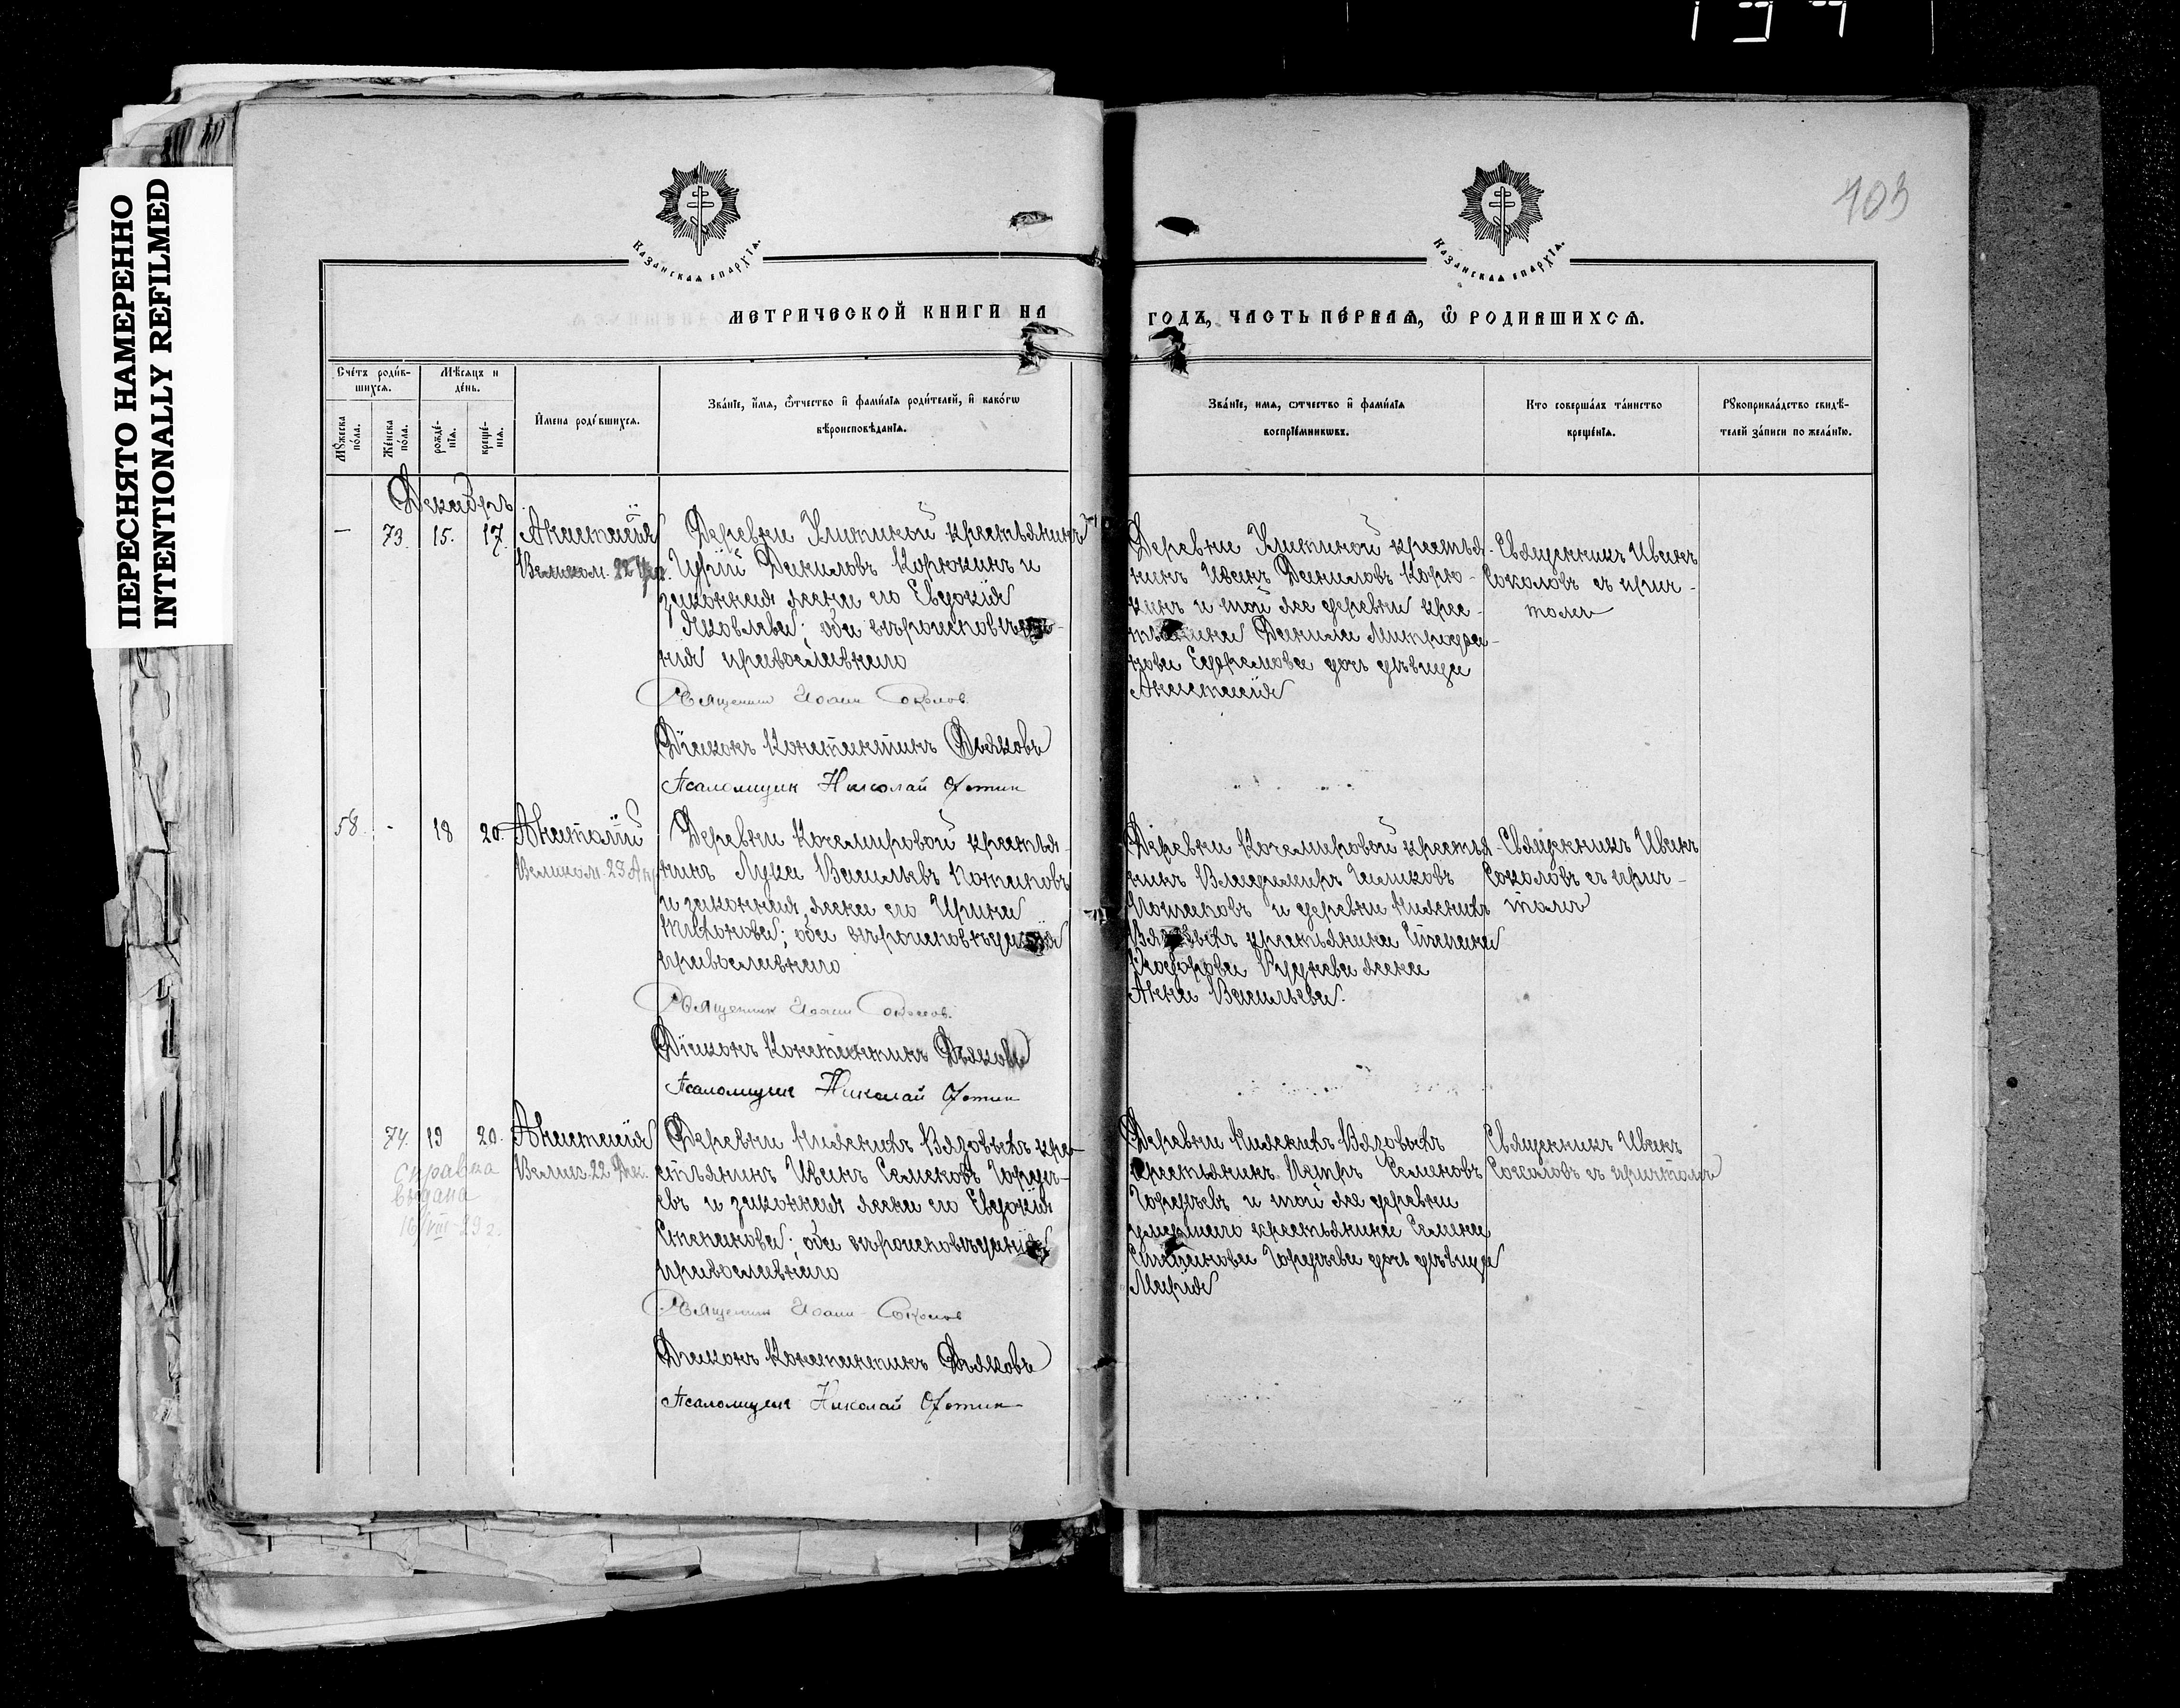 ПЕРЕСНЯТО НАМЕРЕННО
INTENTIONALLY REFILMED
103
Казанская епархїѧ.
Казанская епархїѧ.
МЕТРИЧЕСКОЙ КНИГИ НА
ГОДЪ, ЧАСТЬ ПЕРВАЯ, Ѡ РОДИВШИХСЯ.
Счетъ родив-
шихся.
Мѣсяцъ и
день.
Мужеска
пола.
Женска
пола.
рожде-
нїя.
креще-
нїя.
Имена родившихся.
Званїе, имя, ѿтчество и фамилїя родителей, и какогѡ
вѣроисповѣданїя.
Званїе, имя, ѿтчество и фамилїя
воспрїемникѡвъ.
Кто совершалъ таинство
крещенїя.
Рукоприкладство свидѣ-
телей записи по желанїю.
Декабрь
— 73. 15. 17. Анастасія
Великом. 22 Дек.
Деревни Клитиной крестьянинъ
Гурій Даниловъ Корюкинъ и
законная жена его Евдокія
Яковлева; оба вѣроисповѣда-
нія православнаго
Священник Иоанн Соколов.
Діаконъ Константинъ Дьяковъ
Псаломщик Николай Фотин
Деревни Клитиной крестья-
нинъ Иванъ Даниловъ Корю-
кинъ и той же деревни крес-
тьянина Данила Митрофа-
нова Ефремова дочь дѣвица
Анастасія
Священникъ Иванъ
Соколовъ съ прич-
томъ
58. - 18 20. Анатолій
Великом. 23 Апр.
Деревни Качемировой крестья-
нинъ Лука Васильевъ Потаповъ
и законная жена его Ирина
оба вѣроисповѣданія
православнаго
Священник Иоанн Соколов.
Діаконъ Константинъ Дьяковъ
Псаломщик Николай Фотин
Деревни Качемировой крестья-
нинъ Владимиръ
Потаповъ и деревни Нижнихъ
Вязовыхъ крестьянина Степана
Руднева жена
Анна Васильева.
Священникъ Иванъ
Соколовъ съ прич-
томъ
74. 19 20. Анастасія
Велик. 22 Дек.
справка
выдана
16/VIII-29 г.
Деревни Нижнихъ Вязовыхъ кре-
стьянинъ Иванъ Семеновъ Горде-
евъ и законная жена его Евдокія
Степанова; оба вѣроисповѣданія
православнаго
Священник Иоанн Соколов
Діаконъ Константинъ Дьяковъ
Псаломщик Николай Фотин
Деревни Нижнихъ Вязовыхъ
крестьянинъ Петръ Семеновъ
Гордѣевъ и той же деревни
умершаго крестьянина Семена
Степанова Гордѣева дочь дѣвица
Марія
Священникъ Иванъ
Соколовъ съ причтомъ